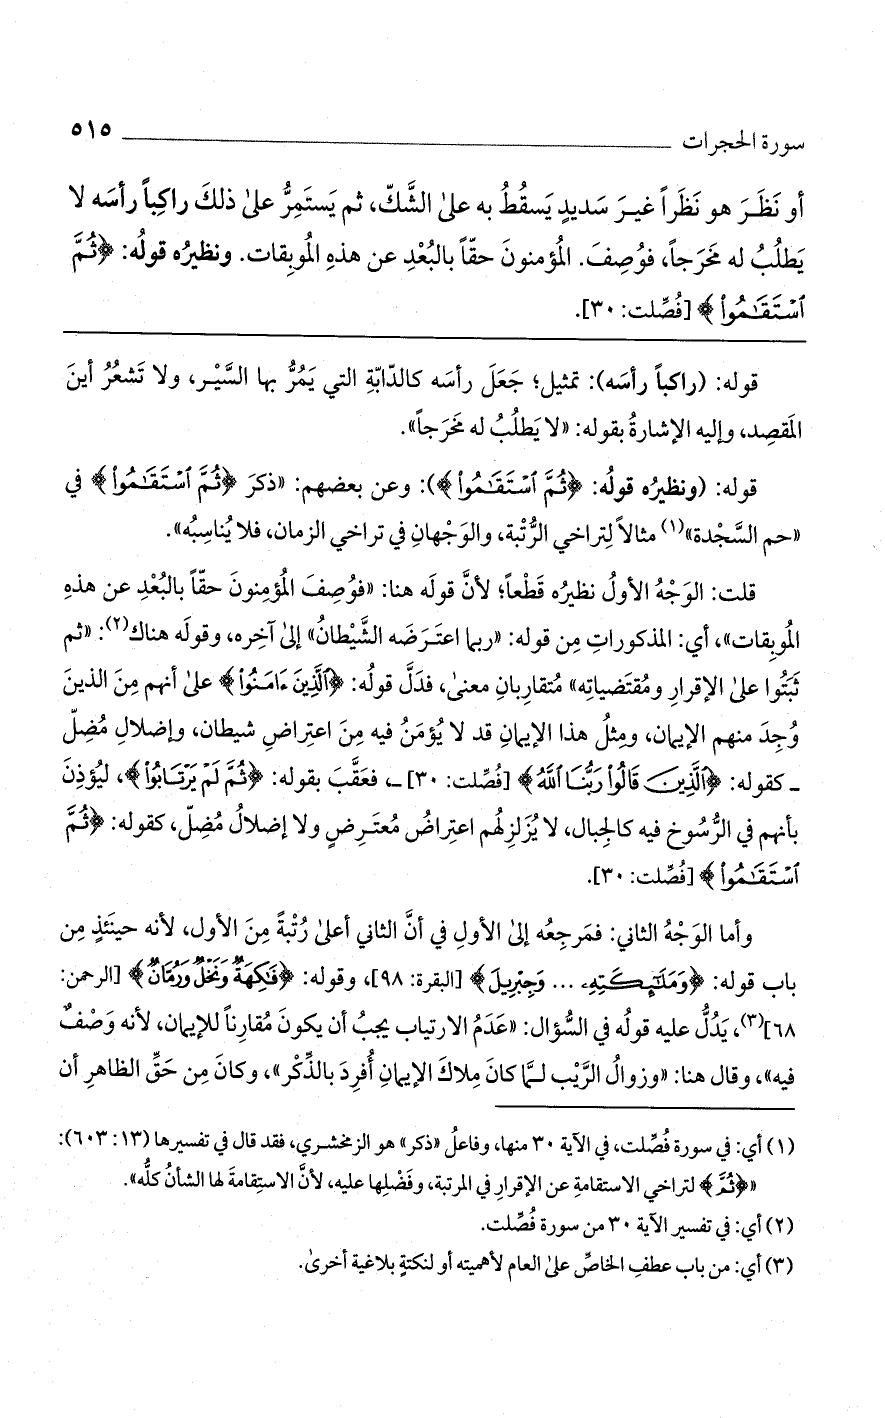 سورة الحجرات ٥١٥
أو نَظَرَ هو نَظَراً غيرَ سَديدٍ يَسقُطُ به على الشَّكّ، ثم يَستَمِرُّ على ذلكَ راكِباً رأسَه لا
يَطلُبُ له مَخرَجاً، فوُصِفَ. المُؤمنونَ حقّاً بالبُعْدِ عن هذهِ المُوبِقات. ونظيرُه قولُه: ﴿ثُمَّ
ٱسْتَقَٰمُوا۟﴾ [فُصِّلت: ٣٠].
قوله: (راكباً رأسَه): تمثيل؛ جَعَلَ رأسَه كالدّابّةِ التي يَمُرُّ بها السَّيْر، ولا تَشعُرُ أينَ
المَقصِد، وإليه الإشارةُ بقوله: «لا يَطلُبُ له مَخرَجاً».
قوله: (ونظيرُه قولُه: ﴿ثُمَّ ٱسْتَقَٰمُوا۟﴾): وعن بعضهم: «ذكرَ ﴿ثُمَّ ٱسْتَقَٰمُوا۟﴾ في
«حم السَّجْدة»(١) مثالاً لِتراخي الرُّتْبة، والوَجْهانِ في تراخي الزمان، فلا يُناسِبُه».
قلت: الوَجْهُ الأولُ نظيرُه قَطْعاً؛ لأنَّ قولَه هنا: «فوُصِفَ المُؤمِنونَ حقّاً بالبُعْدِ عن هذهِ
المُوبِقات»، أي: المذكوراتِ مِن قوله: «ربما اعتَرَضَه الشَّيْطانُ» إلى آخِره، وقولَه هناك(٢): «ثم
ثَبَتُوا على الإقرارِ ومُقتَضياتِه» مُتقارِبانِ معنى، فدَلَّ قولُه: ﴿ٱلَّذِينَ ءَامَنُوا۟﴾ على أنهم مِنَ الذينَ
وُجِدَ منهم الإيمان، ومِثلُ هذا الإيمانِ قد لا يُؤمَنُ فيه مِنَ اعتِراضِ شيطان، وإضلالِ مُضِلّ
ـ كقوله: ﴿ٱلَّذِينَ قَالُوا۟ رَبُّنَا ٱللَّهُ﴾ [فُصِّلت: ٣٠] ـ، فعَقَّبَ بقوله: ﴿ثُمَّ لَمْ يَرْتَابُوا۟﴾، ليُؤذِنَ
بأنهم في الرُّسُوخ فيه كالجِبال، لا يُزَلزِلُهم اعتِراضُ مُعتَرِضٍ ولا إضلالُ مُضِلّ، كقوله: ﴿ثُمَّ
ٱسْتَقَٰمُوا۟﴾ [فُصِّلت: ٣٠].
وأما الوَجْهُ الثاني: فمَرجِعُه إلى الأولِ في أنَّ الثاني أعلى رُتْبةً مِنَ الأول، لأنه حينَئذٍ مِن
باب قوله: ﴿وَمَلَٰٓئِكَتِهِۦ ... وَجِبْرِيلَ﴾ [البقرة: ٩٨]، وقوله: ﴿فَٰكِهَةٌ وَنَخْلٌ وَرُمَّانٌ﴾ [الرحمن:
٦٨](٣)، يَدُلُّ عليه قولُه في السُّؤال: «عَدَمُ الارتياب يجبُ أن يكونَ مُقارِناً للإيمان، لأنه وَصْفٌ
فيه»، وقال هنا: «وزوالُ الرَّيْب لـمّا كانَ مِلاكَ الإيمانِ أُفرِدَ بالذِّكْر»، وكانَ مِن حَقِّ الظاهرِ أن
(١) أي: في سورة فُصِّلت، في الآية ٣٠ منها، وفاعلُ «ذكر» هو الزمخشري، فقد قال في تفسيرها (١٣: ٦٠٣):
«﴿ثُمَّ﴾ لتراخي الاستقامةِ عن الإقرارِ في المرتبة، وفَضْلِها عليه، لأنَّ الاستِقامةَ لها الشأنُ كلُّه».
(٢) أي: في تفسير الآية ٣٠ من سورة فُصِّلت.
(٣) أي: من باب عطفِ الخاصِّ على العام لأهميته أو لنكتةٍ بلاغية أخرى.